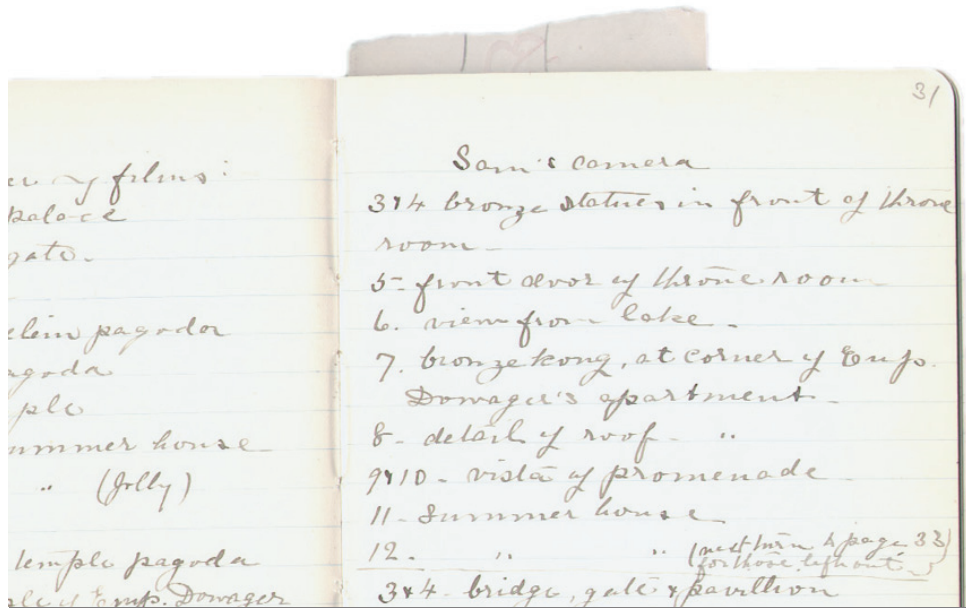 of films:
palace
gate.
pagoda
agoda
ple
ummer house
" (Jolly)
temple pagoda
Emp. Dowager
31
Sam's camera
3&4 bronze statues in front of throne
room -
5- front door of throne room -
6. view from lake -
7. bronze kong, at corner of Emp.
Dowager's apartment -
8- detail of roof - "
9&10 - vista of promenade
11- summer house
12. " " (next turn to page 33)
(for those left out -)
3&4 - bridge, gate & pavillion